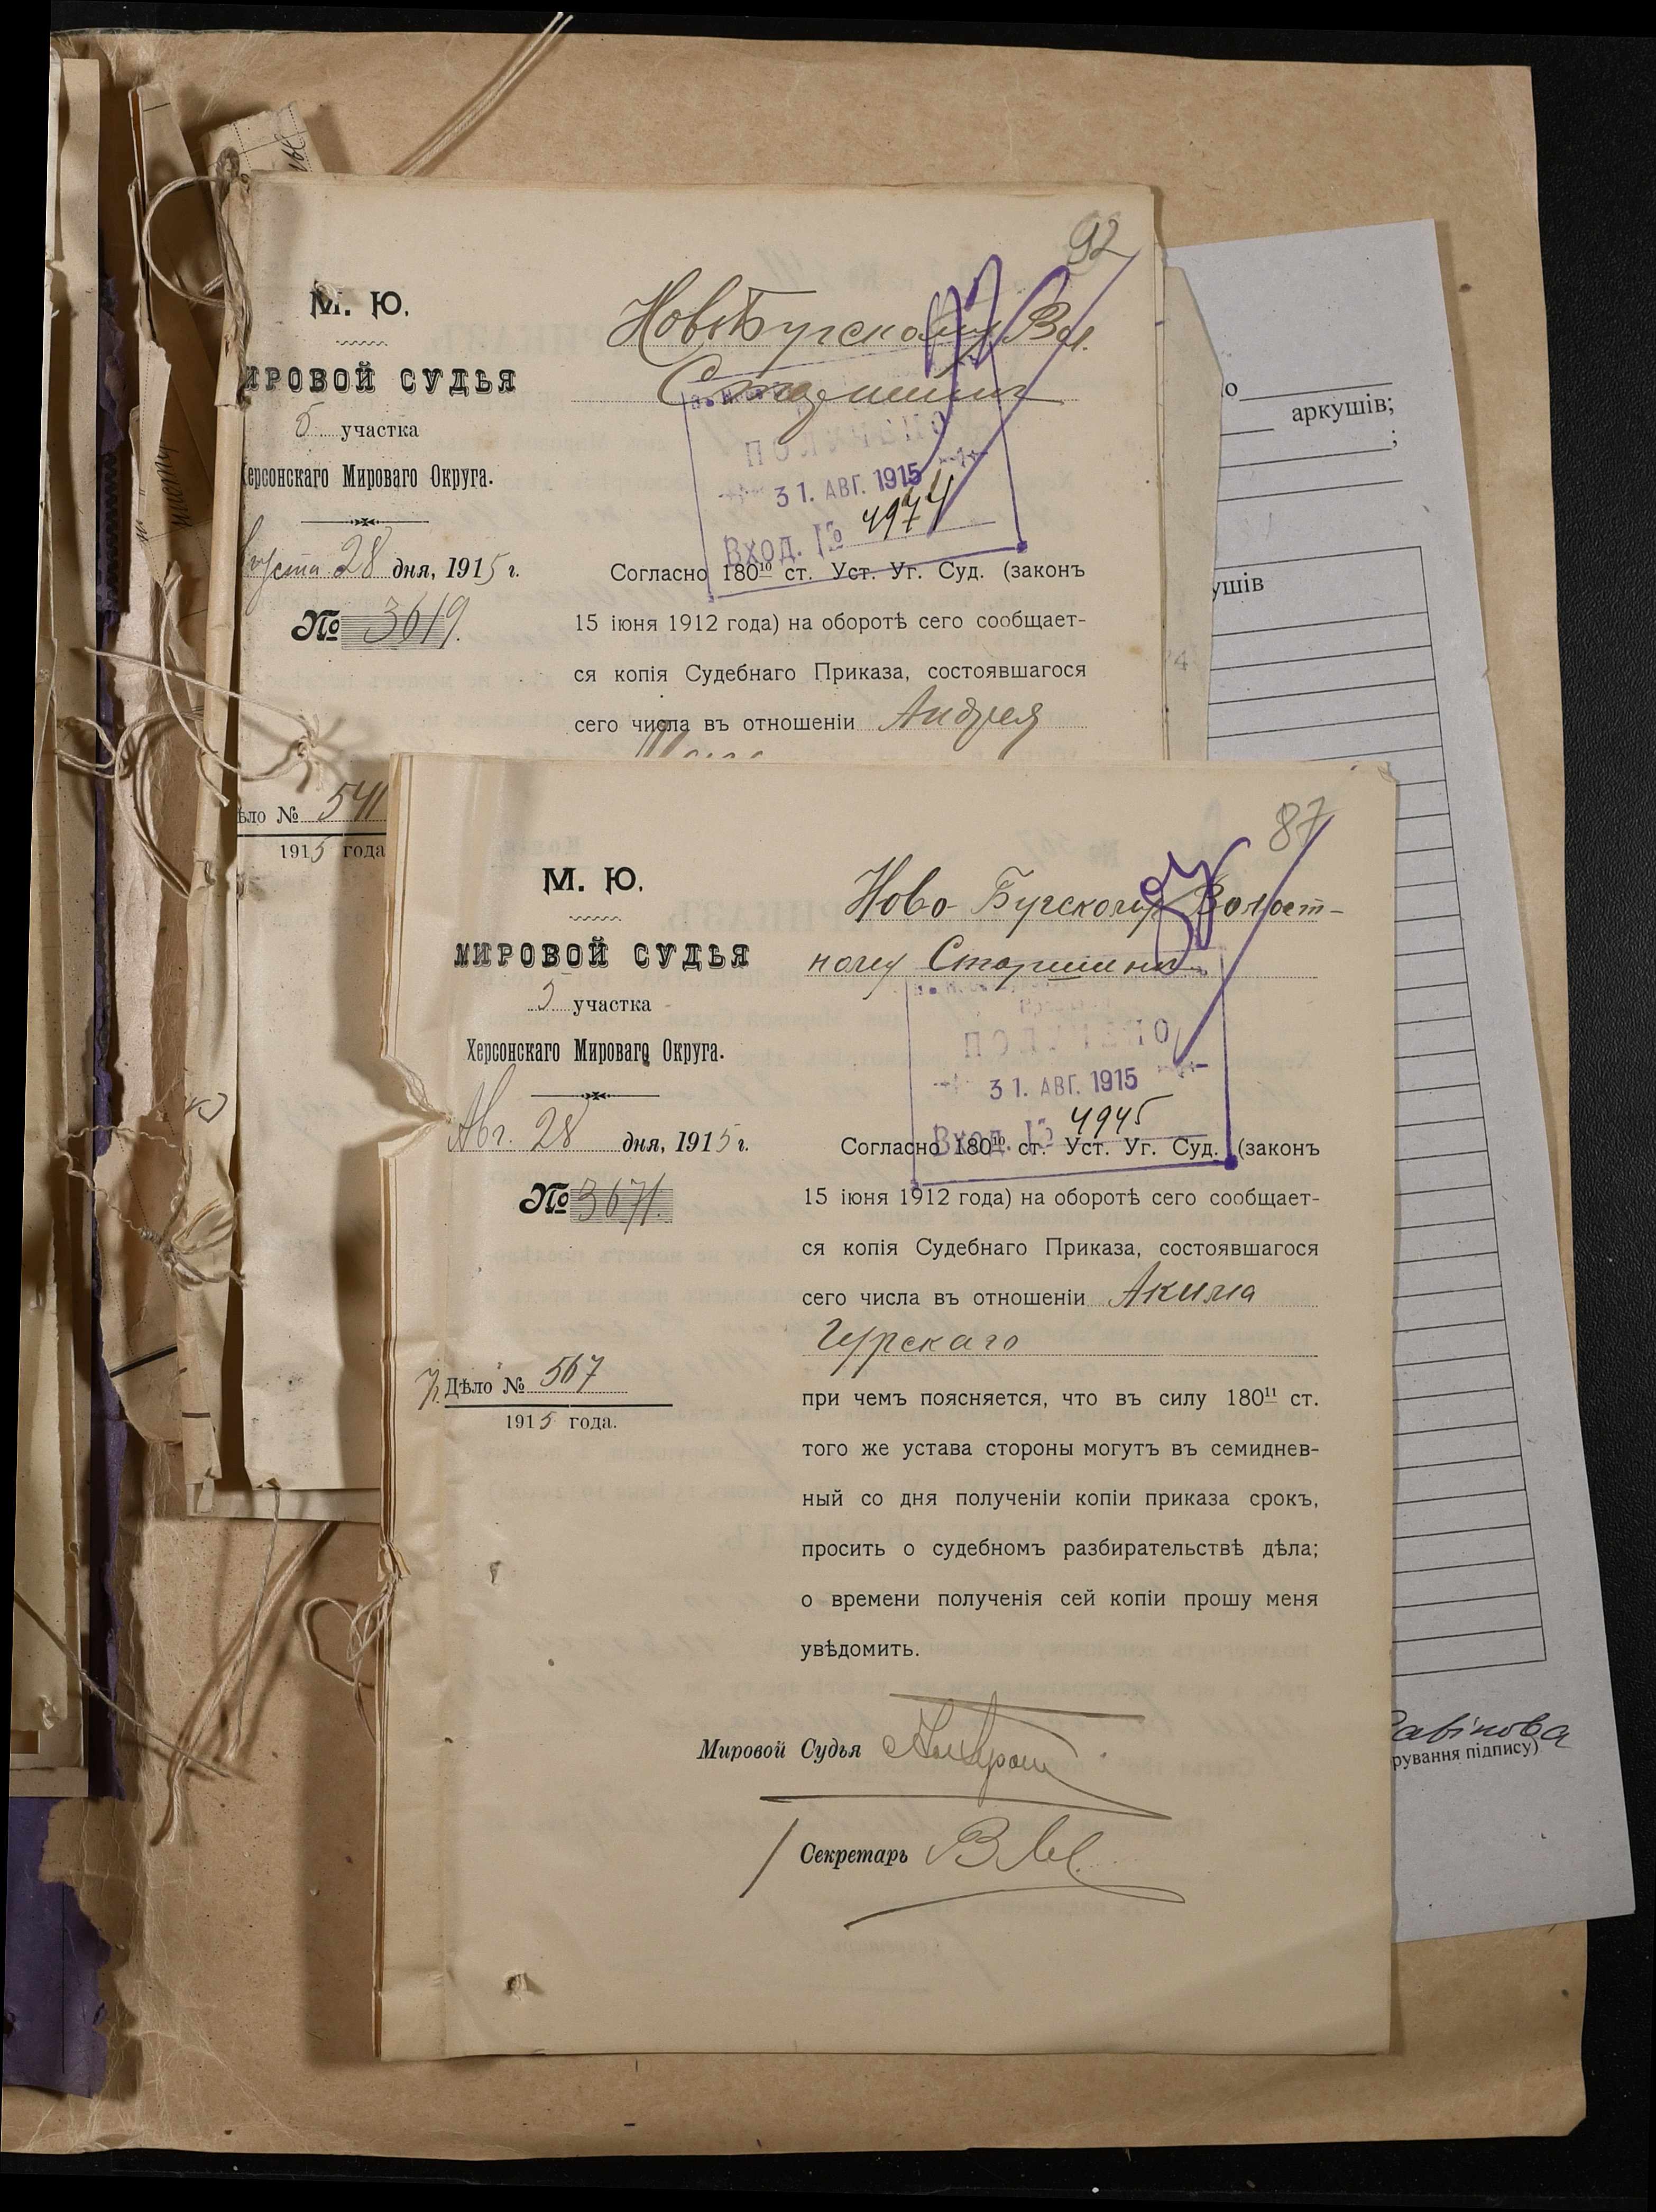 92
М. Ю.
МИРОВОЙ СУДЬЯ
5 участка
Херсонскаго Мирового Округа.
Августа 28 дня, 1915 г.
№ 3619.
НовоБугскому Вол.
Старшинѣ
ПОЛУЧЕНО
31. АВГ. 1915
Вход. № 4974
Согласно 180¹⁰ ст. Уст. Уг. Суд. (законъ
15 іюня 1912 года) на оборотѣ сего сообщает-
ся копія Судебнаго Приказа, состоявшагося
сего числа въ отношеніи Андрея
Дѣло № 541
1915 года
87
М. Ю.
МИРОВОЙ СУДЬЯ
5 участка
Херсонскаго Мироваго Округа.
Авг. 28 дня, 1915 г.
№ 3671.
Дѣло № 567
1915 года.
Ново-Бугскому Волост-
ному Старшинѣ
ПОЛУЧЕНО
31. АВГ. 1915
Вход. № 4945
Согласно 180¹⁰ ст. Уст. Уг. Суд. (законъ
15 іюня 1912 года) на оборотѣ сего сообщает-
ся копія Судебнаго Приказа, состоявшагося
сего числа въ отношеніи Акима
Гурскаго
при чемъ поясняется, что въ силу 180¹¹ ст.
того же устава стороны могутъ въ семиднев-
ный со дня полученіи копіи приказа срокъ,
просить о судебномъ разбирательствѣ дѣла;
о времени полученія сей копіи прошу меня
увѣдомить.
Мировой Судья
Секретарь
аркушів;
;
ушів
рування підпису)